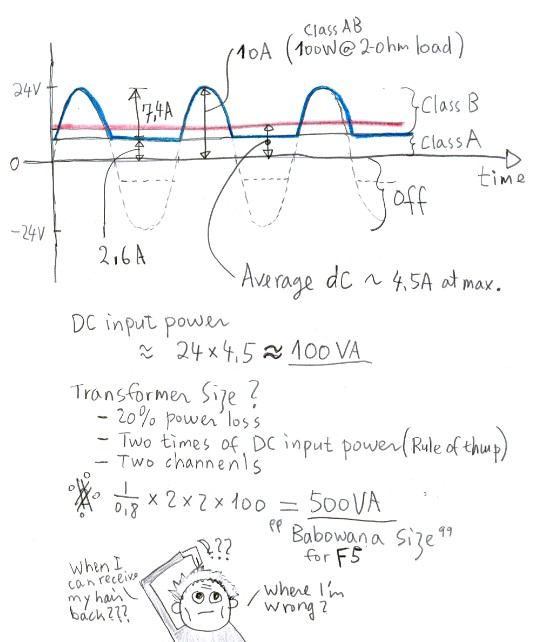 Class AB
10A (100W@2-ohm load)
24V
7,4A
Class B
Class A
0
time
Off
-24V
2,6A
Average dC ~ 4,5A at max.
DC input power
≈ 24 x 4,5 ≈ 100VA
Transformer Size?
- 20% power loss
- Two times of DC input power (Rule of thump)
- Two channenls
※ 1/0,8 x 2 x 2 x 100 = 500VA
"Babowana Size"
for F5
??
When I
can receive
my hair
back???
Where I'm
wrong?